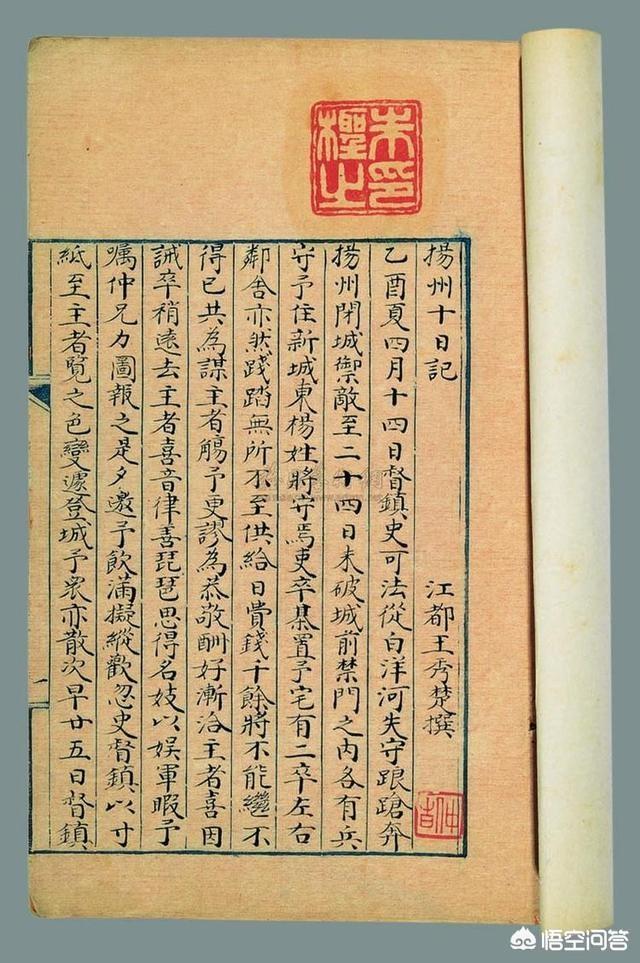 朱印
檉之
揚州十日記 江都王秀楚撰
乙酉夏四月十四日督鎮史可法從白洋河失守踉蹌奔
揚州閉城禦敵至二十四日未破城前禁門之內各有兵
守予住新城東楊姓將守焉吏卒棊置予宅有二卒左右
鄰舍亦然踐蹈無所不至供給日費錢千餘將不能繼不
得已共為謀主者觴予更謬為恭敬酬好漸洽主者喜因
誡卒稍遠去主者喜音律善琵琶思得名妓以娛軍暇予
囑仲兄力圖報之是夕邀予飲滿擬縱歡忽史督鎮以寸
紙至主者覽之色變遽登城予眾亦散次早廿五日督鎮
悟空问答